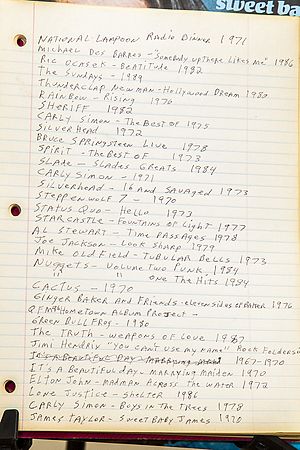 sweet ba
NATIONAL LAMPOON RADIO DINNER 1971
MICHAEL DES BARRES - "SOMEBODY UP THERE LIKES ME" 1986
RIC OCASEK - BEATITUDE 1982
THE SUNDAYS - 1989
THUNDERCLAP NEWMAN - HOLLYWOOD DREAM
RAINBOW - RISING 1976
SHERIFF 1982
CARLY SIMON - THE BEST OF 1975
SILVERHEAD 1972
BRUCE SPRINGSTEEN LIVE 1978
SPIRIT - THE BEST OF 1973
SLADE - SLADES GREATS 1984
CARLY SIMON - 1971
SILVERHEAD - 16 AND SAVAGED 1973
STEPPENWOLF 7 - 1970
STATUS QUO - HELLO 1973
STARCASTLE - FOUNTAINS OF LIGHT 1977
AL STEWART - TIME PASSAGES 1978
JOE JACKSON - LOOK SHARP 1979
MIKE OLDFIELD - TUBULAR BELLS 1973
NUGGETS - VOLUME TWO PUNK 1984
" " ONE THE HITS 1984
CACTUS - 1970
GINGER BAKER AND FRIENDS - ELEVEN SIDES OF BAKER 1976
QFM96 HOMETOWN ALBUM PROJECT -
GREEN BULLFROG - 1980
THE TRUTH - WEAPONS OF LOVE 1987
JIMI HENDRIX "YOU CAN'T USE MY NAME" ROCK FOLDERS
IT'S A BEAUTIFUL DAY - MARRYING MAID 1967-1970
IT'S A BEAUTIFUL DAY - MARRYING MAIDEN 1970
ELTON JOHN - MADMAN ACROSS THE WATER 1972
LONE JUSTICE - SHELTER 1986
CARLY SIMON - BOYS IN THE TREES 1978
JAMES TAYLOR - SWEET BABY JAMES 1970